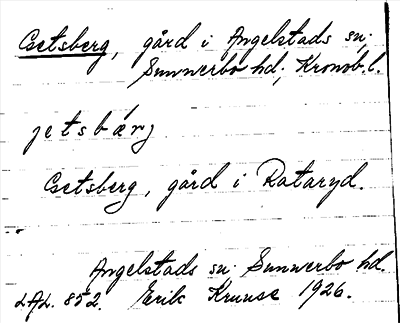 Getsberg, gård i Angelstads sn.
Sunnerbo hd; Kronob. l.
jetsbærj
Getsberg, gård i Rataryd.
Angelstads sn Sunnerbo hd.
LAL. 852. Erik Kruuse 1926.